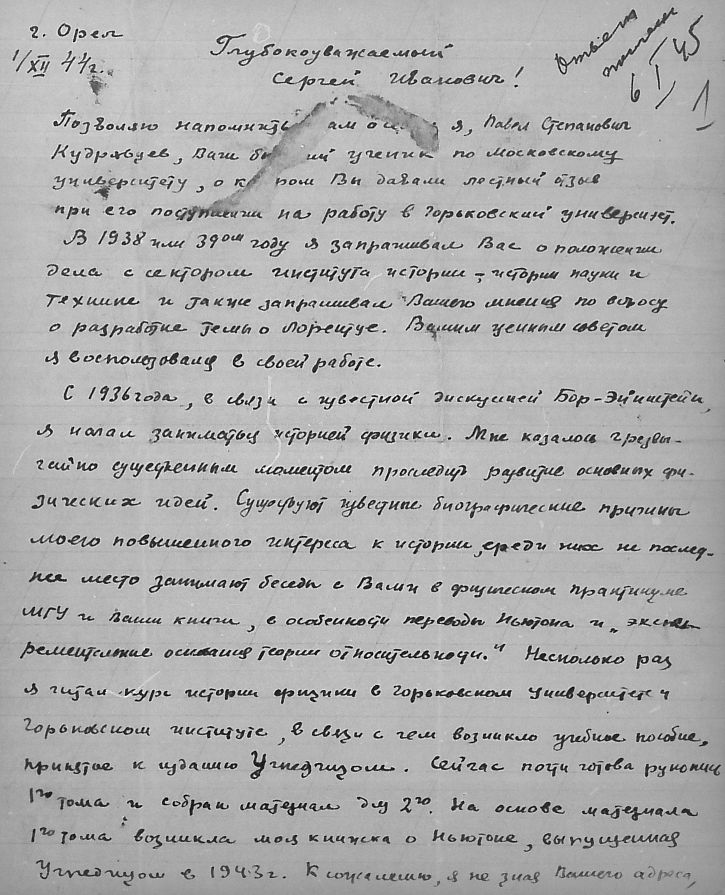 г. Орел
1/XII 44г.
Ответ
послан
6 I 45
1
Глубокоуважаемый
Сергей Иванович!
Позволяю напомнить я, Павел Степанович
Кудрявцев, Ваш ученик по московскому
университету, о Вы давали лестный отзыв
при его поступлении на работу в Горьковский университет.
В 1938 или 39ом году я запрашивал Вас о положении
дела с сектором института истории – истории науки и
техники и также запрашивал Вашего мнения по вопросу
о разработке темы о Лорентце. Вашим ценным советом
я воспользовался в своей работе.
С 1936 года, в связи с известной дискуссией Бор-Эйнштейн,
я начал заниматься историей физики. Мне казалось чрезвы-
чайно существенным моментом проследить развитие основных фи-
зических идей. Существуют известные биографические причины
моего повышенного интереса к истории, среди них не послед-
нее место занимают беседы с Вами в физическом практикуме
МГУ и Ваши книги, в особенности переводы Ньютона и „экспе-
риментальные основания теории относительности." Несколько раз
я читал курс истории физики в Горьковском университете и
Горьковском институте, в связи с чем возникло учебное пособие,
принятое к изданию Учпедгизом. Сейчас почти готова рукопись
1го тома и собран материал для 2го. На основе материала
1го тома возникла моя книжка о Ньютоне, выпущенная
Учпедгизом в 1943 г. К сожалению, я не знал Вашего адреса,